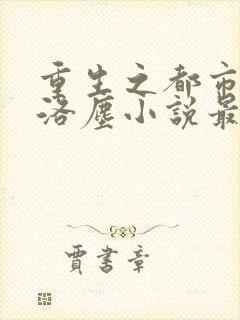 重生之都市
洛塵小説最
賈書章